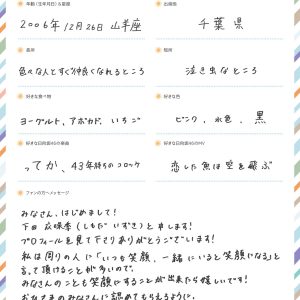 年齢（生年月日）＆星座
出身地
2006年12月26日 山羊座
千葉県
長所
短所
色々な人とすぐ仲良くなれるところ
泣き虫なところ
好きな食べ物
好きな色
ヨーグルト, アボカド, いちご
ピンク, 水色, 黒
好きな日向坂46の楽曲
好きな日向坂46のMV
ってか, 43年待ちのコロッケ
恋した魚は空を飛ぶ
ファンの方へメッセージ
みなさん, はじめまして!
下田 衣珠季(しもだ いずき)と申します!
プロフィールを見て下さりありがとうございます!
私は周りの人に「いつも笑顔, 一緒にいると笑顔になる」と
言って頂けることが多いので,
みなさんのことも笑顔にすることが出来たら嬉しいです!
おひさまのみなさんに認めてもらえるように,